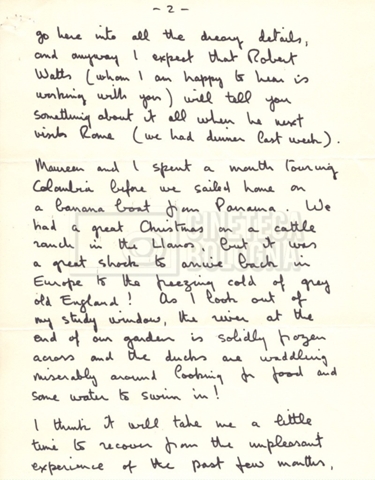 - 2 -
go here into all the dreary details,
and anyway I expect that Robert
Watts (whom I am happy to hear is
working with you) will tell you
something about it all when he next
visits Rome (we had dinner last week).
Maureen and I spent a month touring
Colombia before we sailed home on
a banana boat from Panama. We
had a great Christmas on a cattle
ranch in the Llanos, but it was
a great shock to arrive back in
Europe to the freezing cold of grey
old England! As I look out of
my study window, the river at the
end of our garden is solidly frozen
across and the ducks are waddling
miserably around looking for food and
some water to swim in!
I think it will take me a little
time to recover from the unpleasant
experience of the past few months,
CINETECA
BOLOGNA